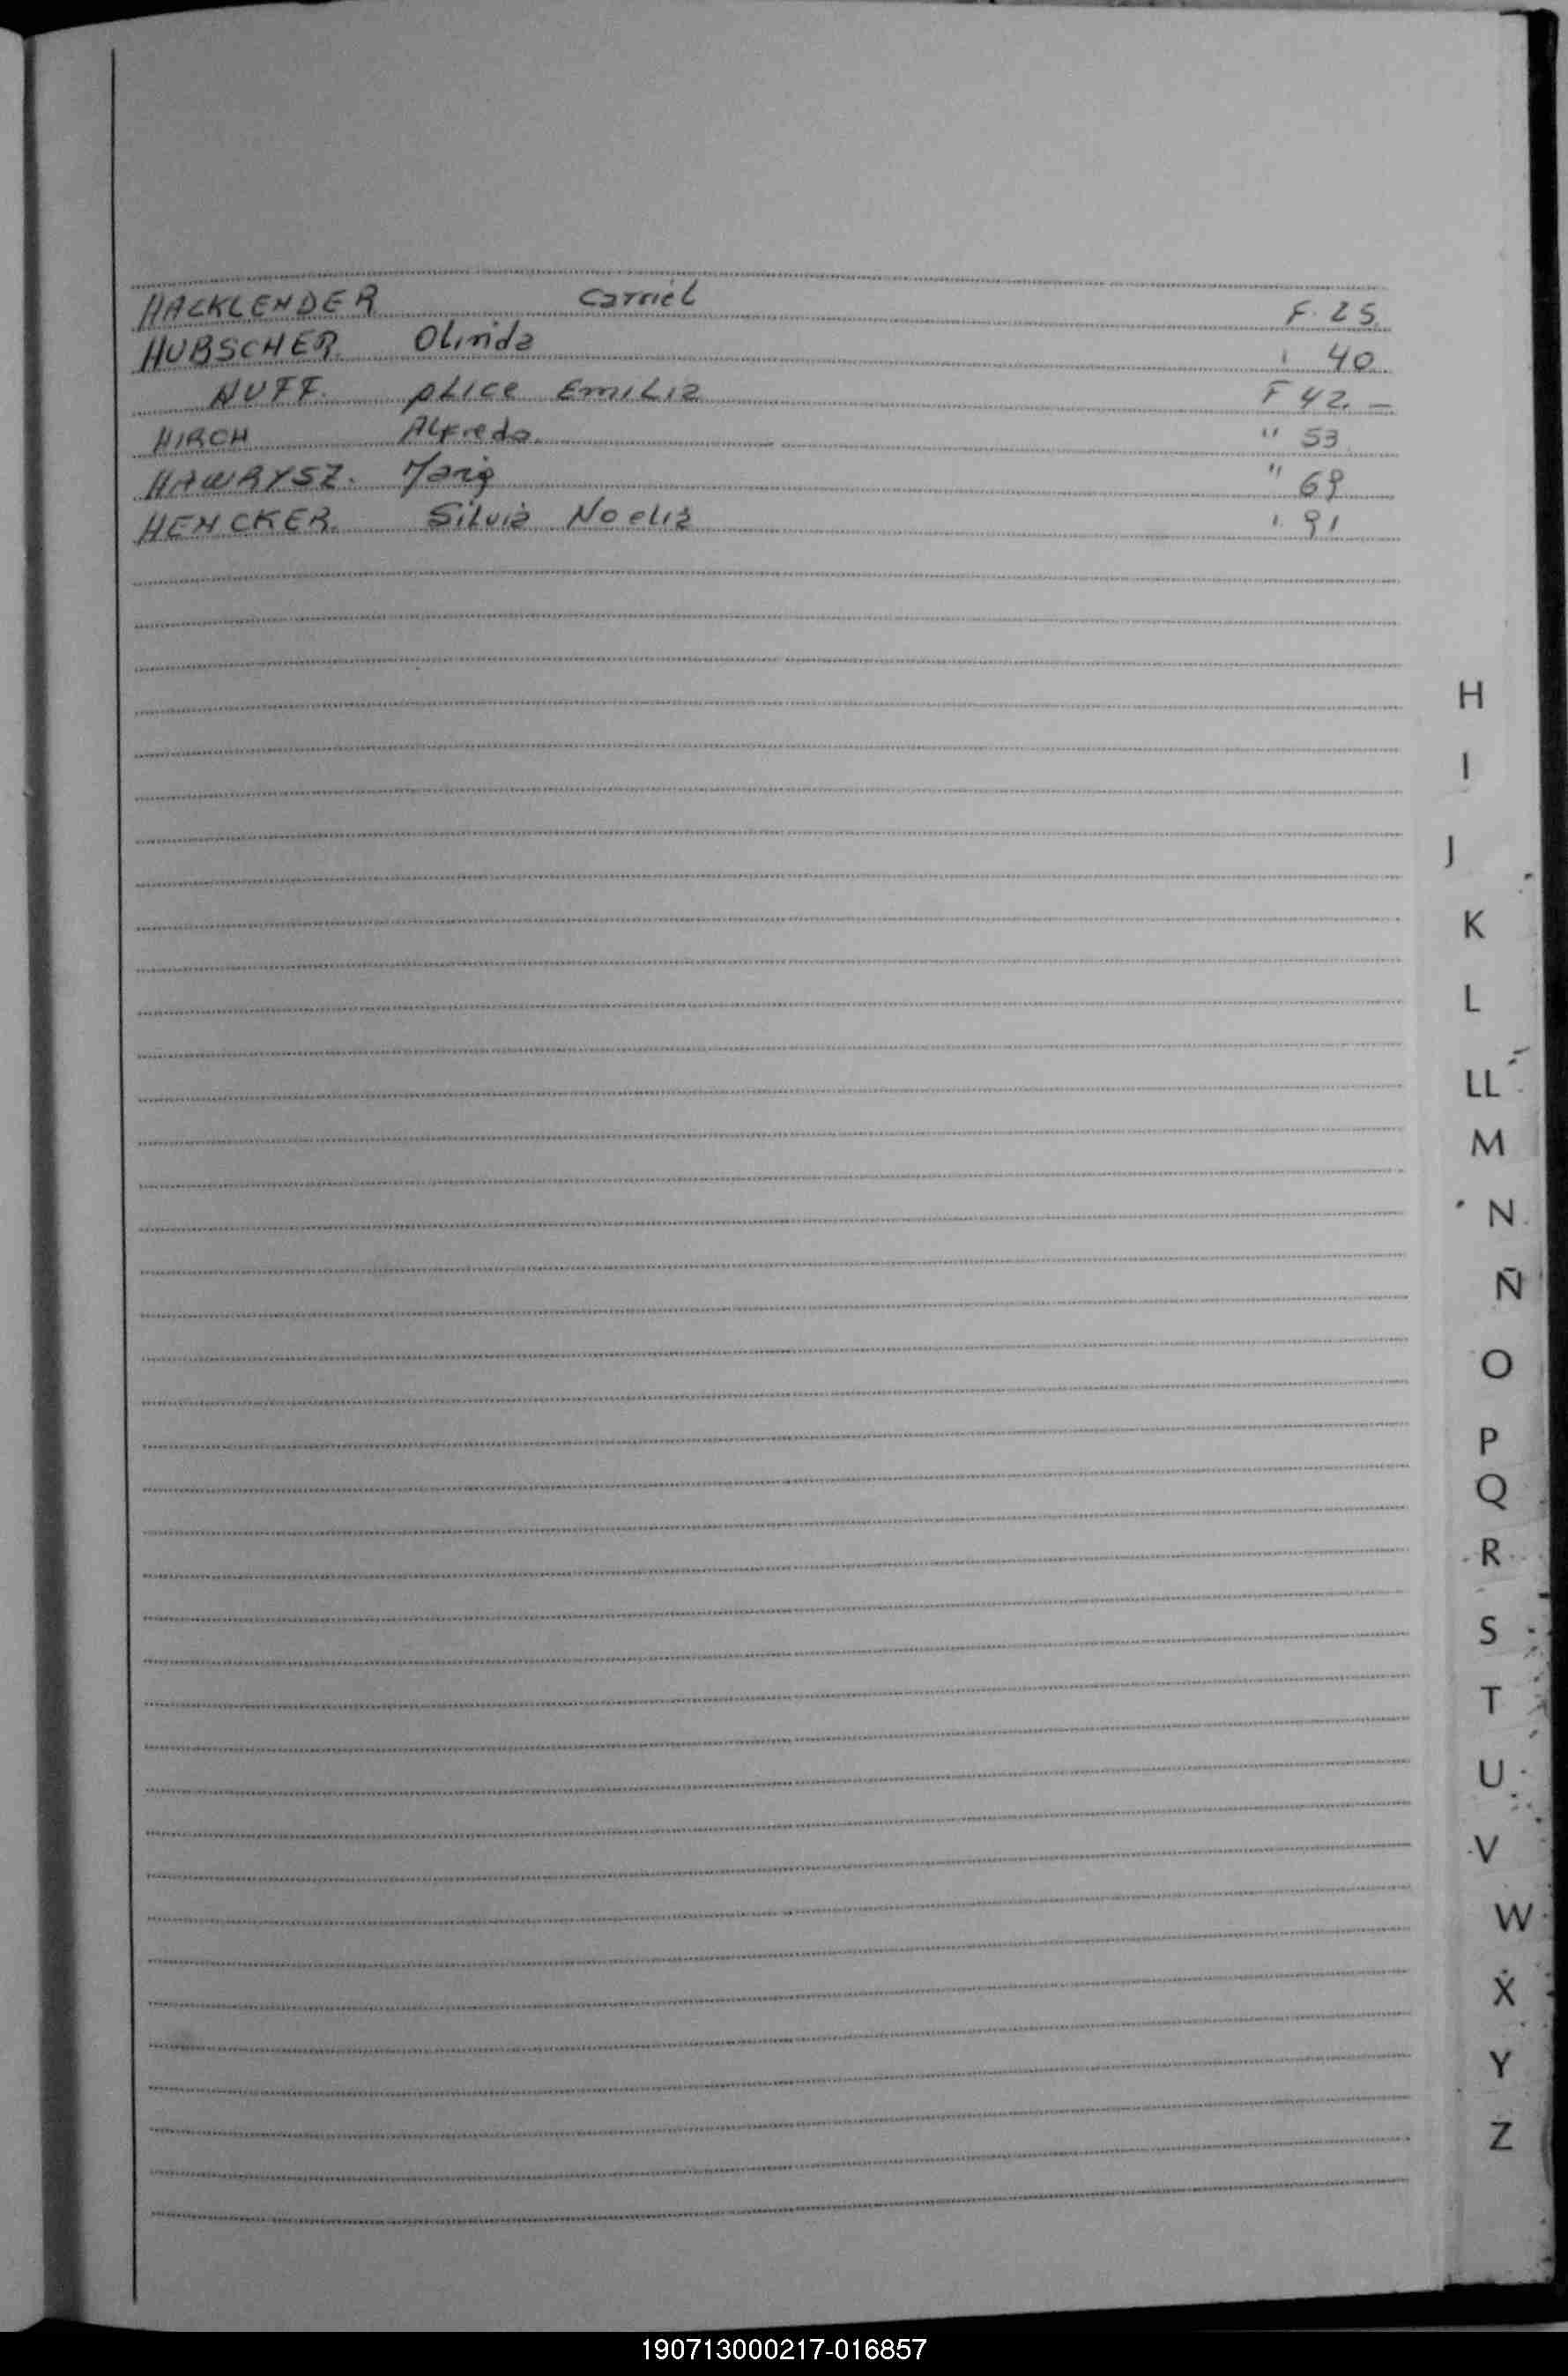 HACKLENDER Carriel F. 25.
HUBSCHER. Olinda " 40
HUFF. Alice Emilia F 42. -
HIRCH Alfredo. " 53
HAWRYSZ. " 69
HENCKER. Silvia Noelia " 91
H
I
J
K
L
LL
M
N
Ñ
O
P
Q
R
S
T
U
V
W
X
Y
Z
190713000217-016857